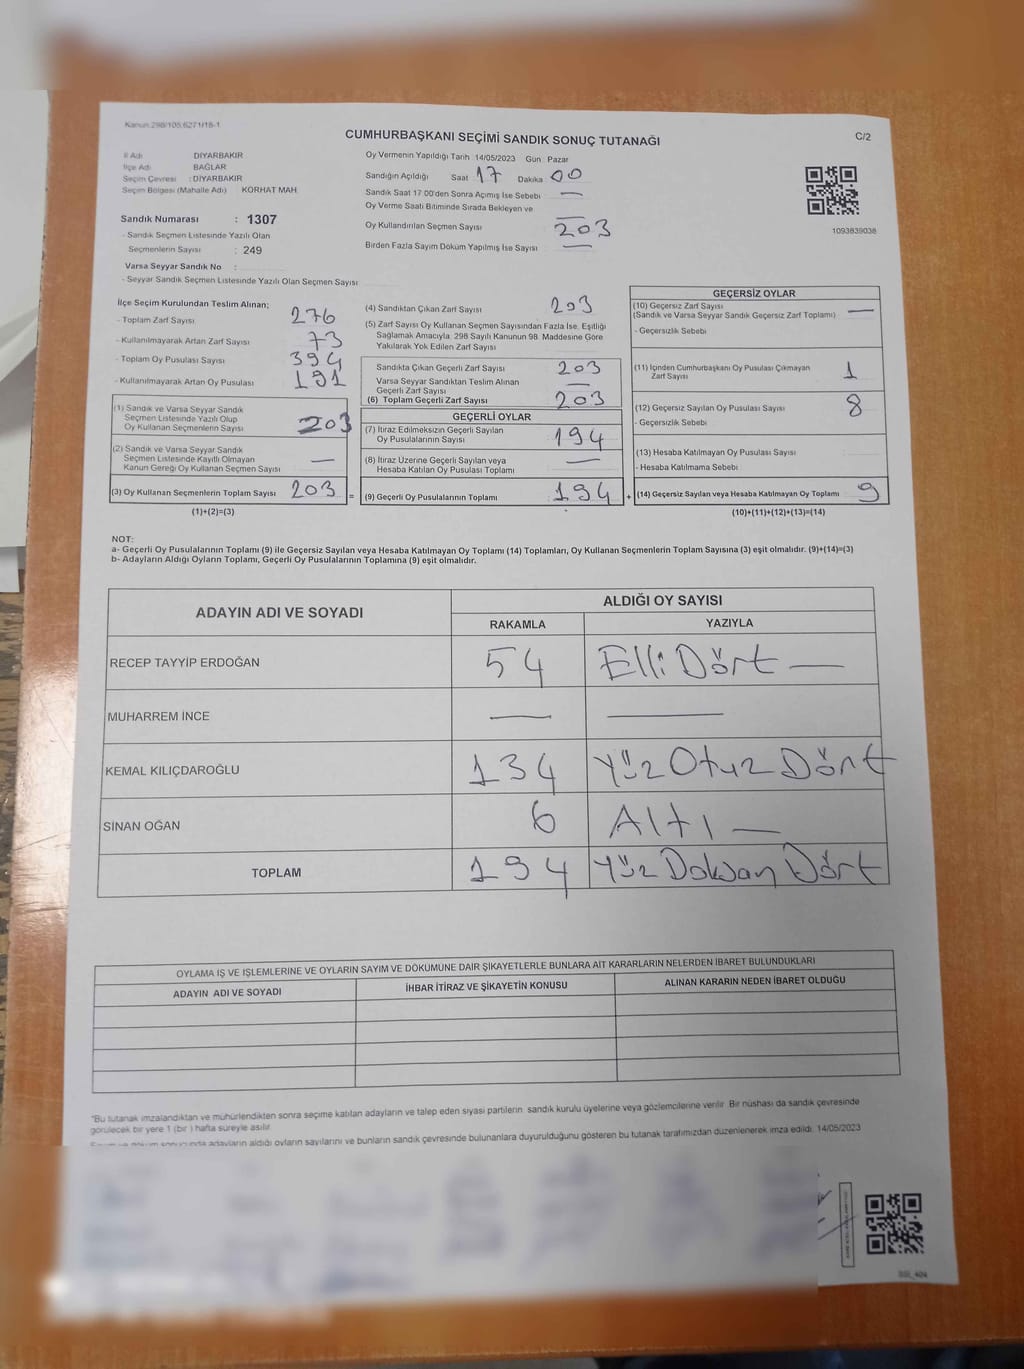 Kanun:298/105,6271/18-1
CUMHURBAŞKANI SEÇİMİ SANDIK SONUÇ TUTANAĞI
C/2
İl Adı DİYARBAKIR
İlçe Adı BAĞLAR
Seçim Çevresi : DİYARBAKIR
Seçim Bölgesi (Mahalle Adı) KORHAT MAH.
Sandık Numarası : 1307
- Sandık Seçmen Listesinde Yazılı Olan
Seçmenlerin Sayısı : 249
Varsa Seyyar Sandık No :
- Seyyar Sandık Seçmen Listesinde Yazılı Olan Seçmen Sayısı
Oy Vermenin Yapıldığı Tarih 14/05/2023 Gün : Pazar
Sandığın Açıldığı Saat 17 Dakika 00
Sandık Saat 17.00'den Sonra Açımış İse Sebebi —
Oy Verme Saati Bitiminde Sırada Bekleyen ve —
Oy Kullandırılan Seçmen Sayısı 203
Birden Fazla Sayım Döküm Yapılmış İse Sayısı —
1093839038
İlçe Seçim Kurulundan Teslim Alınan;
- Toplam Zarf Sayısı 276
- Kullanılmayarak Artan Zarf Sayısı 73
- Toplam Oy Pusulası Sayısı 394
- Kullanılmayarak Artan Oy Pusulası 191
(1) Sandık ve Varsa Seyyar Sandık
Seçmen Listesinde Yazılı Olup
Oy Kullanan Seçmenlerin Sayısı 203
(2) Sandık ve Varsa Seyyar Sandık
Seçmen Listesinde Kayıtlı Olmayan
Kanun Gereği Oy Kullanan Seçmen Sayısı —
(3) Oy Kullanan Seçmenlerin Toplam Sayısı 203 =
(1)+(2)=(3)
(4) Sandıktan Çıkan Zarf Sayısı 203
(5) Zarf Sayısı Oy Kullanan Seçmen Sayısından Fazla İse, Eşitliği
Sağlamak Amacıyla, 298 Sayılı Kanunun 98. Maddesine Göre
Yakılarak Yok Edilen Zarf Sayısı
Sandıkta Çıkan Geçerli Zarf Sayısı 203
Varsa Seyyar Sandıktan Teslim Alınan
Geçerli Zarf Sayısı —
(6) Toplam Geçerli Zarf Sayısı 203
GEÇERLİ OYLAR
(7) İtiraz Edilmeksizin Geçerli Sayılan
Oy Pusulalarının Sayısı 194
(8) İtiraz Üzerine Geçerli Sayılan veya
Hesaba Katılan Oy Pusulası Toplamı —
(9) Geçerli Oy Pusulalarının Toplamı 194 +
GEÇERSİZ OYLAR
(10) Geçersiz Zarf Sayısı
(Sandık ve Varsa Seyyar Sandık Geçersiz Zarf Toplamı) —
- Geçersizlik Sebebi
(11) İçinden Cumhurbaşkanı Oy Pusulası Çıkmayan
Zarf Sayısı 1
(12) Geçersiz Sayılan Oy Pusulası Sayısı 8
- Geçersizlik Sebebi
(13) Hesaba Katılmayan Oy Pusulası Sayısı
- Hesaba Katılmama Sebebi
(14) Geçersiz Sayılan veya Hesaba Katılmayan Oy Toplamı 9
(10)+(11)+(12)+(13)=(14)
NOT:
a- Geçerli Oy Pusulalarının Toplamı (9) ile Geçersiz Sayılan veya Hesaba Katılmayan Oy Toplamı (14) Toplamları, Oy Kullanan Seçmenlerin Toplam Sayısına (3) eşit olmalıdır. (9)+(14)=(3)
b- Adayların Aldığı Oyların Toplamı, Geçerli Oy Pusulalarının Toplamına (9) eşit olmalıdır.
ADAYIN ADI VE SOYADI
ALDIĞI OY SAYISI
RAKAMLA YAZIYLA
RECEP TAYYİP ERDOĞAN 54 Elli Dört —
MUHARREM İNCE — —
KEMAL KILIÇDAROĞLU 134 Yüz Otuz Dört
SİNAN OĞAN 6 Altı —
TOPLAM 194 Yüz Doksan Dört
OYLAMA İŞ VE İŞLEMLERİNE VE OYLARIN SAYIM VE DÖKÜMÜNE DAİR ŞİKAYETLERLE BUNLARA AİT KARARLARIN NELERDEN İBARET BULUNDUKLARI
ADAYIN ADI VE SOYADI İHBAR İTİRAZ VE ŞİKAYETİN KONUSU ALINAN KARARIN NEDEN İBARET OLDUĞU
"Bu tutanak imzalandıktan ve mühürlendikten sonra seçime katılan adayların ve talep eden siyasi partilerin sandık kurulu üyelerine veya gözlemcilerine verilir. Bir nüshası da sandık çevresinde
görülecek bir yere 1 (bir ) hafta süreyle asılır.
adayların aldığı oyların sayılarını ve bunların sandık çevresinde bulunanlara duyurulduğunu gösteren bu tutanak tarafımızdan düzenlenerek imza edildi. 14/05/2023